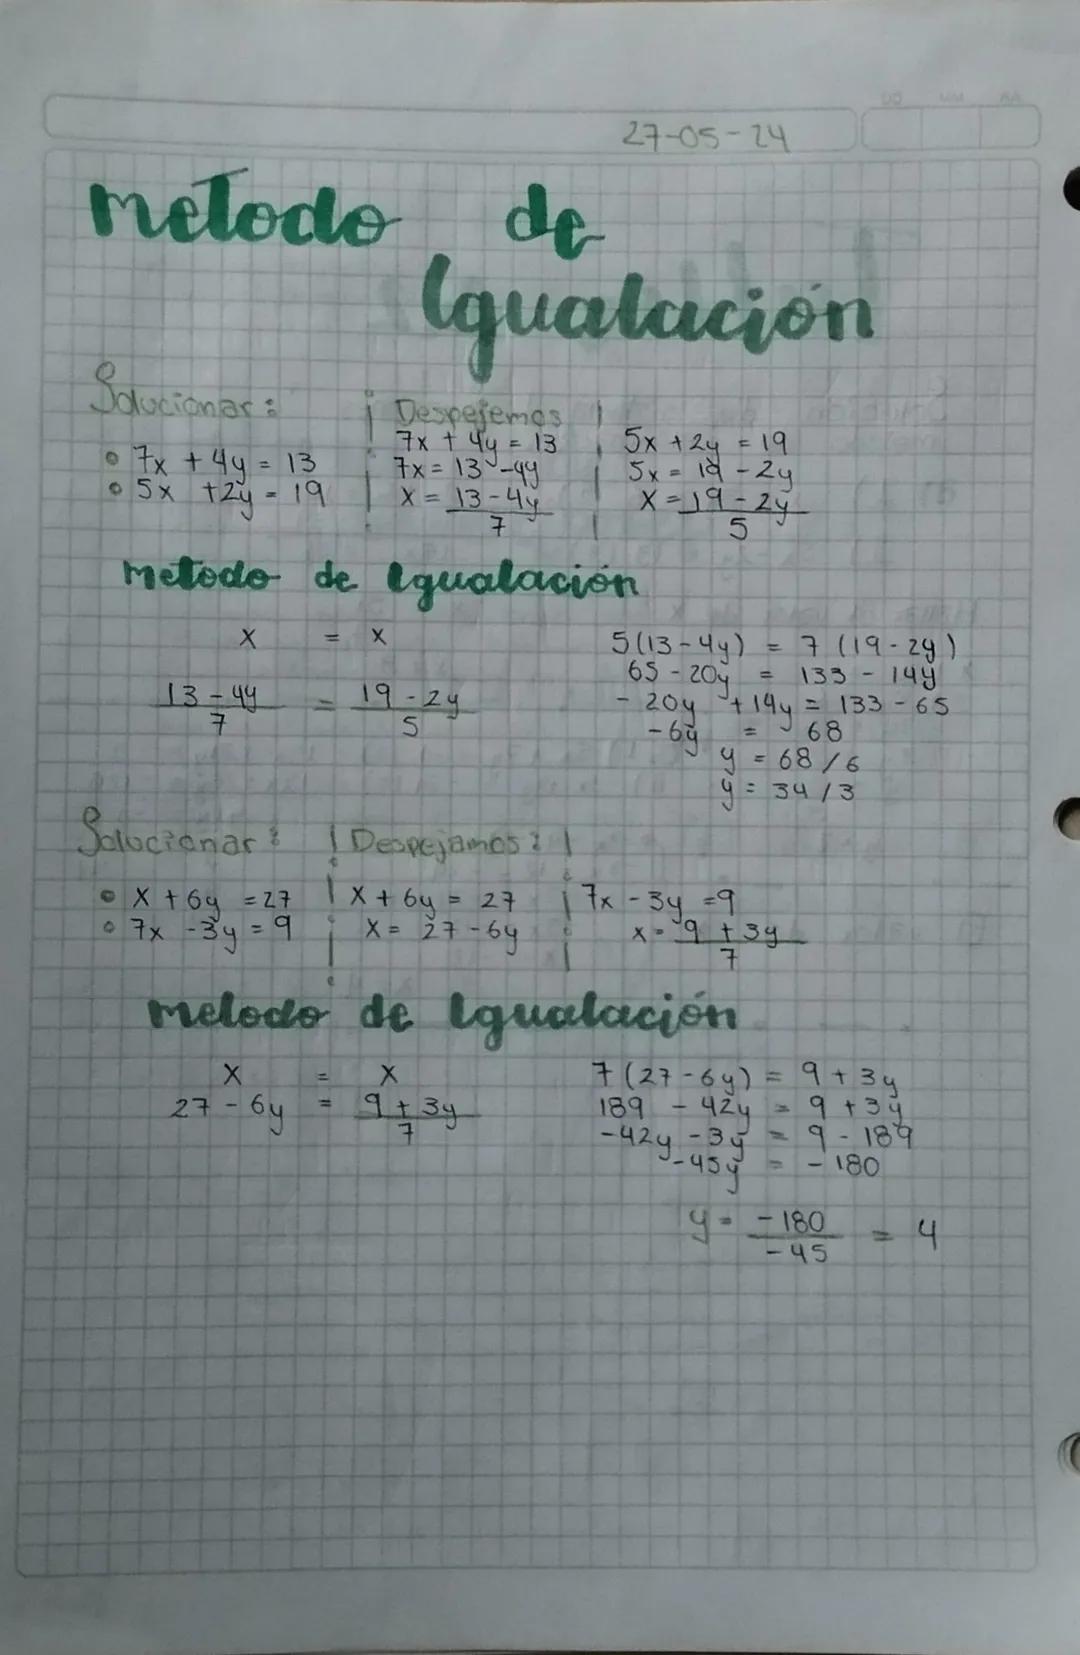 DD MM AA
27-05-24
metodo de
Igualación
Solucionar:
• 7x + 4y = 13
• 5x + 2y = 19
Despejemos
7x + 4y = 13
7x = 13 - 4y
x = 13 - 4y
7
5x + 2y = 19
5x = 19 - 2y
x = 19 - 2y
5
metodo de Igualación
x = x
13 - 4y = 19 - 2y
7 5
5(13 - 4y) = 7 (19 - 2y)
65 - 20y = 133 - 14y
- 20y + 14y = 133 - 65
- 6y = 68
y = 68 / 6
y = 34 / 3
Solucionar:
• x + 6y = 27
• 7x - 3y = 9
Despejamos:
x + 6y = 27
x = 27 - 6y
7x - 3y = 9
x = 9 + 3y
7
metodo de Igualación
x = x
27 - 6y = 9 + 3y
7
7 (27 - 6y) = 9 + 3y
189 - 42y = 9 + 3y
- 42y - 3y = 9 - 189
- 45y = - 180
y = - 180 = 4
- 45